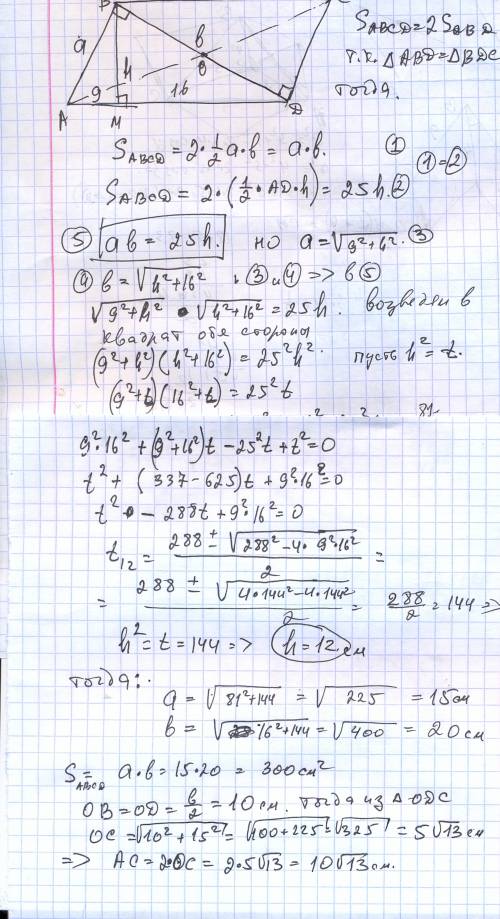 B
S_ABCD = 2 S_ABD
a
b
Т.к. △ABD = △BDC
h
O
Тогда.
9
16
A
M
D
S_ABCD = 2·1/2 a·b = a·b. ①
①=②
S_ABCD = 2·(1/2·AD·h) = 25h. ②
⑤ ab = 25h. но a = √(9²+h²). ③
④ b = √(h²+16²) ③ и ④ => в ⑤
√(9²+h²) • √(h²+16²) = 25h. возведем в
квадрат обе стороны
(9²+h²)(h²+16²) = 25²h². пусть h² = t.
(9²+t)(16²+t) = 25²t
81
9²·16² + (9²+16²)t - 25²t + t² = 0
t² + (337-625)t + 9²·16² = 0
t² - 288t + 9²·16² = 0
t₁₂ = (288 ± √(288²-4·9²·16²))/2 =
= (288 ± √(4·144²-4·144²))/2 = 288/2 = 144 =>
h² = t = 144 => h = 12 см
тогда:
a = √(81²+144) = √225 = 15 см
b = √(16²+144) = √400 = 20 см
S_ABCD = a·b = 15·20 = 300 см²
OB = OD = b/2 = 10 см. Тогда из △ODC
OC = √(10²+15²) = √(100+225) = √325 = 5√13 см
=> AC = 2·OC = 2·5√13 = 10√13 см.